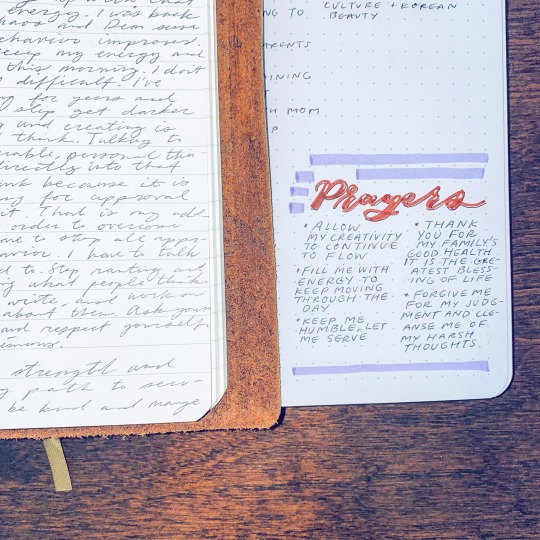 energy. I was back
and Dem sense
behavior improves.
keep my energy and
this morning. I don't
difficult. I've
for years and
step get darker
and creating is
think. Talking to
personal this
directly into that
because it is
for approval
it. That is my
order to overcome
to stop all
I have to talk
to. Stop ranting and
what people think
write and work on
about them. Ask your
and respect yourself
strength and
path to serv-
be kind and make
NG TO
CULTURE + KOREAN
BEAUTY
ARENTS
INING
H MOM
P
Prayers
• ALLOW
MY CREATIVITY
TO CONTINUE
TO FLOW
• FILL ME WITH
ENERGY TO
KEEP MOVING
THROUGH THE
DAY
• KEEP ME
HUMBLE, LET
ME SERVE
• THANK
YOU FOR
MY FAMILY'S
GOOD HEALTH
IT IS THE GRE-
ATEST BLESS-
ING OF LIFE
• FORGIVE ME
FOR MY JUDG-
MENT AND CLE-
ANSE ME OF
MY HARSH
THOUGHTS.